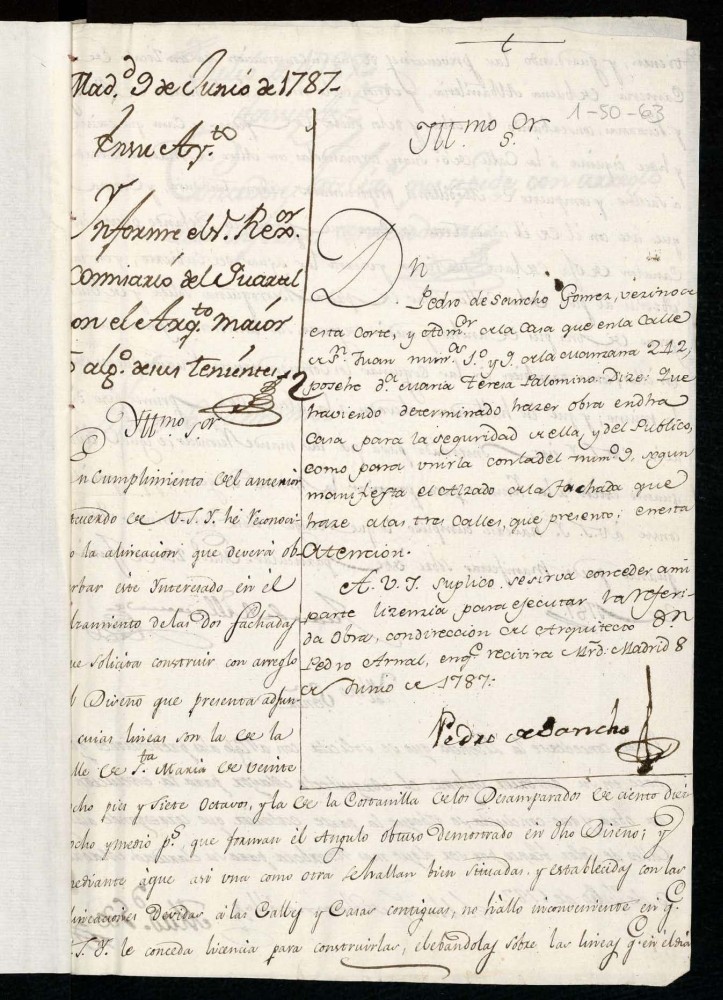 t
Mad.d 9 de Junio de 1787.
1-50-63
Yll.mo S.or
En su Ay.to
Ynforme el S.r Rex.or
Comisario del Quartel
con el Arq.to maior
ó alg.o de sus tenientes
Dn
Pedro de Sancho Gomez, vezino de
esta Corte, y Adm.or de la Casa que en la Calle
de Sn. Juan num.os 1.o y 9. de la Manzana 242,
posehe d.a Maria Teresa Palomino: Dize: Que
haviendo determinado hazer obra en dha
Casa para la seguridad de ella, y del Publico,
como para unirla con la del num.o 9, segun
manifiesta el Alzado de la Fachada que
haze a las tres Calles, que presento; en esta
Atencion.
A. V. I. Suplico se sirva conceder a mi
parte lizenzia para ejecutar la referi-
da Obra, con direccion del Arquitecto Dn
Pedro Arnal, en q.e recivira Mrd: Madrid 8
de Junio de 1787:
Pedro de Sancho
Yll.mo S.or
En Cumplimiento del anterior
Acuerdo de V.S.Y. hé reconoci-
do la alineacion que deverá ob-
serbar este Interesado en el
de las dos fachadas
que solicita construir con arreglo
al Diseño que presenta adjun-
cuias lineas son la de la
Calle de S.ta Maria de veinte
ocho pies y siete Octavos, y la de la Costanilla de los Desamparados de ciento diez
ocho y medio p.s que forman el Angulo obtuso demostrado en dho Diseño; y
mediante á que asi una como otra se hallan bien situadas, y establecidas con las
alineaciones devidas á las Calles y Casas contiguas, no hallo inconveniente en q.e
V.S.Y. le conceda licencia para construirlas, elebandolas sobre las lineas q.e en el dia